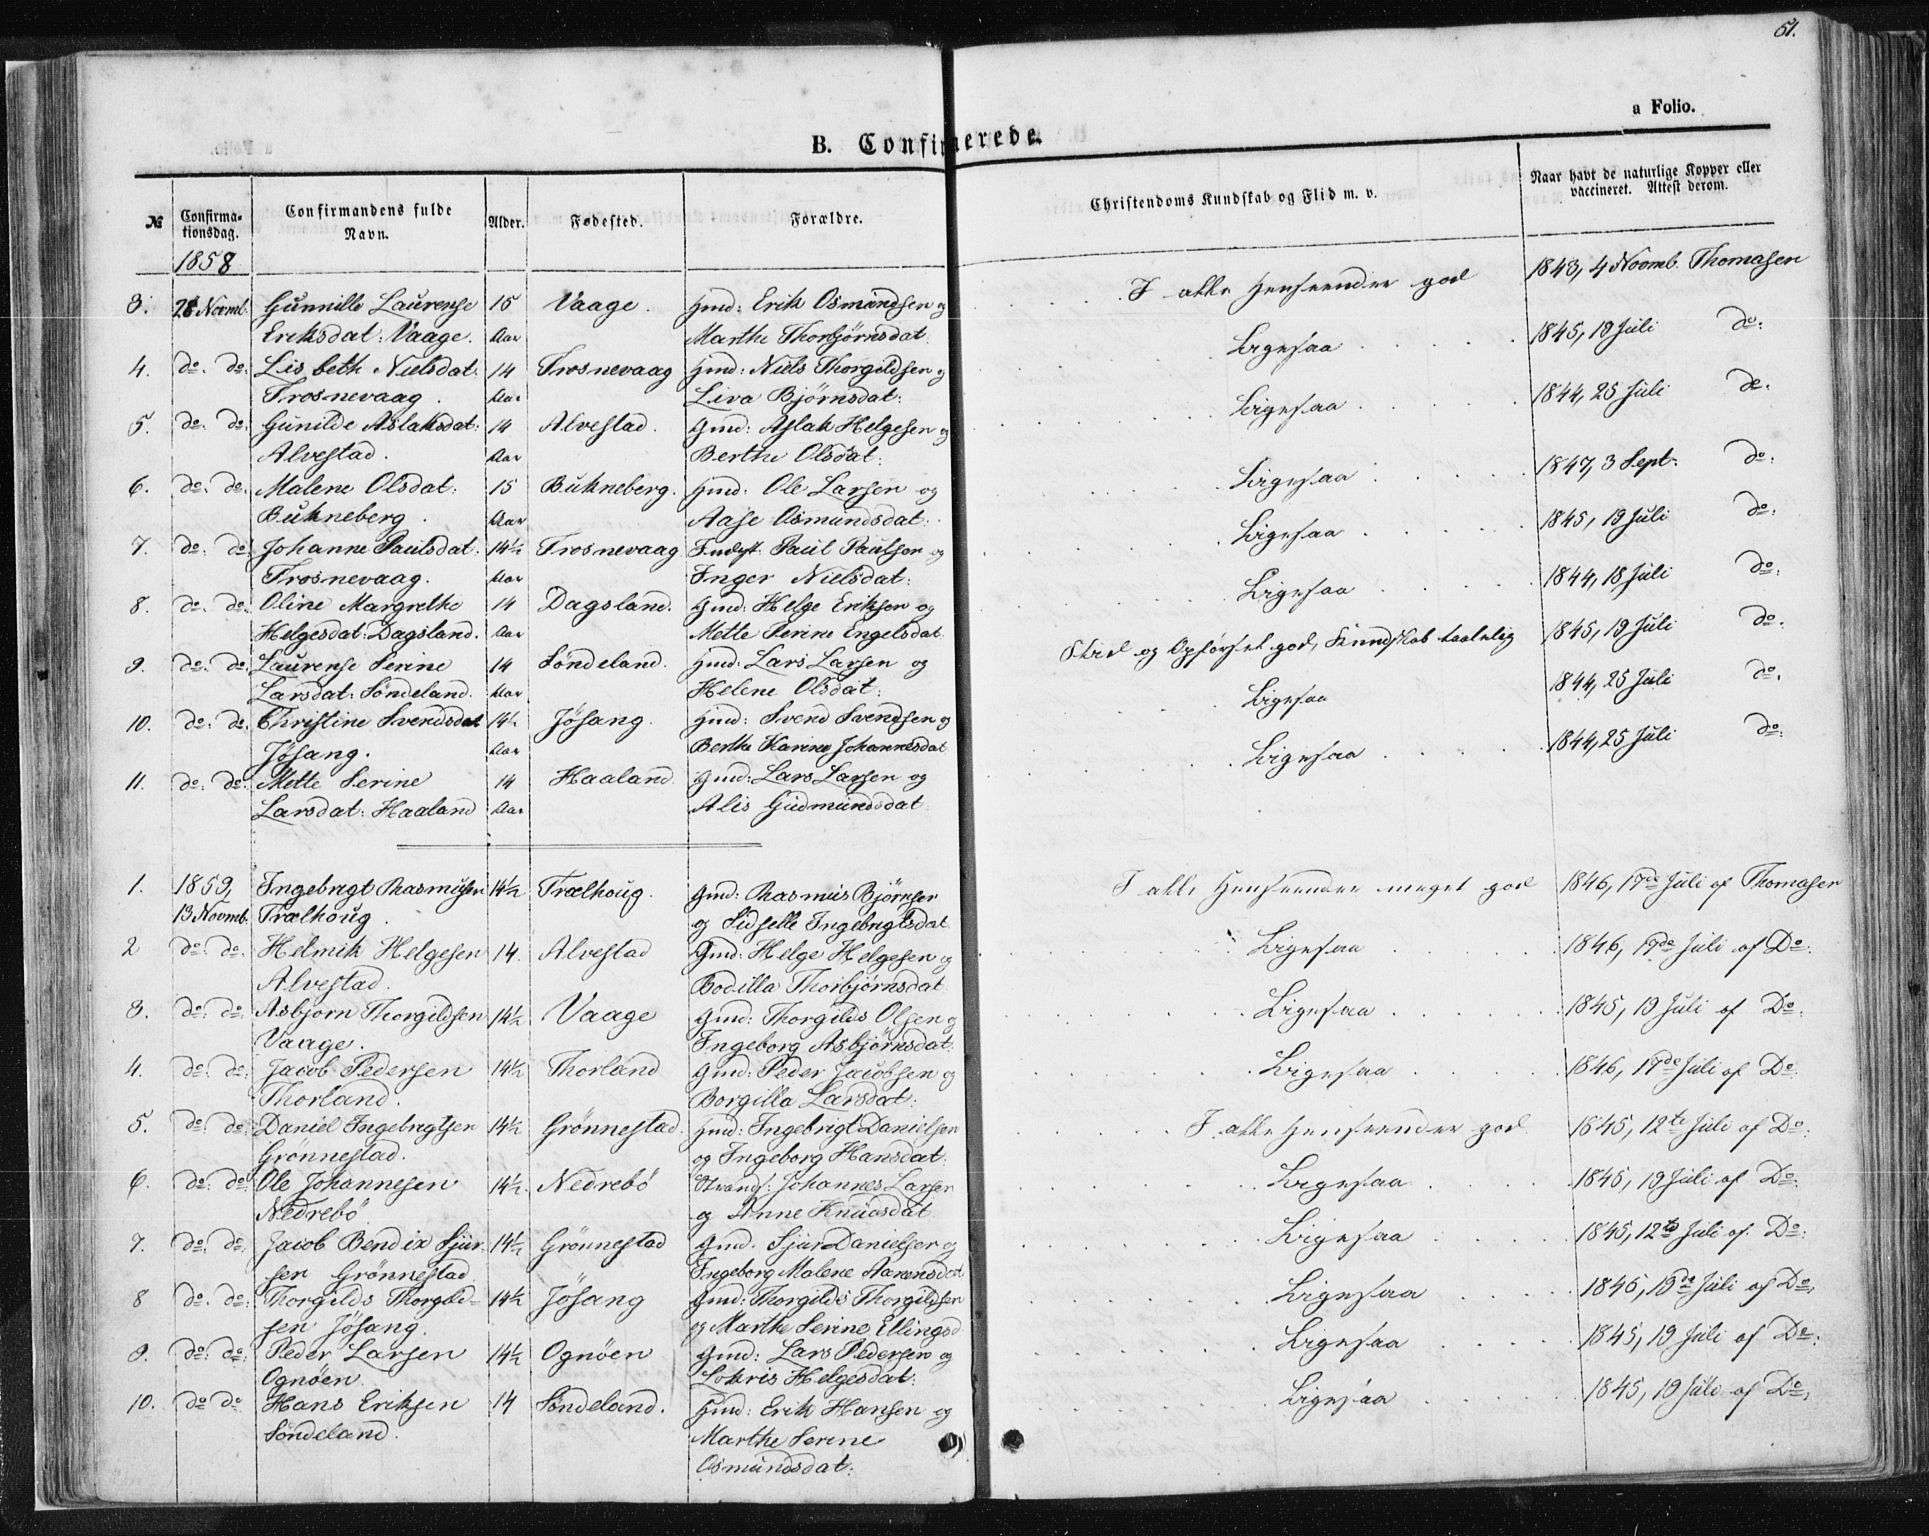 51.
a Folio.
B. Confirmerede.
№ Confirma-tionsdag. Confirmandens fulde Navn. Alder. Fødested. Forældre. Christendoms Kundskab og Flid m. v. Naar havt de naturlige Kopper eller vaccineret. Attest derom.
1858
3. 28 Novmb. Gunnille Laurense 15 Vaage. Gmd: Erik Osmundsen og I alle Henseender god 1843, 4 Novmb. Thomasen
Eriksdat: Vaage. Aar Marthe Thorbjörnsdat:
4. do: do: Lisbeth Nielsdat: 14 Trosnevaag Gmd: Niels Thorgildsen og Ligesaa 1845, 19 Juli do:
Trosnevaag. Aar Liva Björnsdat:
5. do: do: Gunilde Aslaksdat: 14 Alvestad. Gmd: Aslak Helgesen og Ligesaa 1844, 25 Juli do.
Alvestad. Aar Berthe Olsdat:
6. do: do: Malene Olsdat: 15 Bukneberg. Gmd: Ole Larsen og Ligesaa 1847, 3 Sept. do:
Bukneberg. Aar Aase Osmundsdat:
7. do: do: Johanne Paulsdat: 14½ Trosnevaag Paul Paulsen og Ligesaa 1845, 19 Juli do:
Trosnevaag. Aar Inger Nielsdat:
8. do: do: Oline Margrethe 14 Dagsland. Gmd: Helge Eriksen og Ligesaa 1844, 18 Juli do:
Helgesdat: Dagsland. Aar Mette Serine Engelsdat
9. do: do: Laurense Serine 14 Söndeland. Gmd: Lars Larsen og Flid og Opförsel god, Kundskab taalelig 1845, 19 Juli do:
Larsdat: Söndeland. Aar Helene Olsdat:
10. do: do: Christine Svendsdat 14½ Jösang. Gmd: Svend Svendsen og Ligesaa 1844, 25 Juli do.
Jösang. Aar Berthe Karine Johannesdat
11. do: do: Mette Serine 14 Haaland Gmd: Lars Larsen og Ligesaa 1844, 25 Juli do:
Larsdat: Haaland Aar Alis Gudmundsdat:
1. 1859, Ingebrigt Rasmusen 14½ Trælhoug. Gmd: Rasmus Björnsen I alle Henseender meget god 1846, 17de Juli af Thomasen
13 Novmb. Trælhoug. og Sidselle Ingebrigtsdat
2 do: do: Helmik Helgesen 14. Alvestad Gmd: Helge Helgesen og Ligesaa 1846, 17de Juli af Do:
Alvestad. Bodilla Thorbjörnsdat
3. do: do: Asbjorn Thorgildsen 14½ Vaage Gmd: Thorgilds Olsen og Ligesaa 1845, 19 Juli af Do:
Vaage. Ingeborg Asbjörnsdat:
4. do: do: Jacob Pedersen 14½ Thorland Gmd: Peder Jacobsen og Ligesaa 1846, 17de Juli af Do:
Thorland. Borgilla Larsdat:
5. do: do: Daniel Ingebrigtsen 14½ Grönnestad. Gmd: Ingebrigt Danielsen I alle Henseender god 1845, 12te Juli af Do:
Grönnestad. og Ingeborg Hansdat:
6. do: do: Ole Johannesen 14½ Nedrebö Strands: Johannes Larsen Ligesaa 1845, 19 Juli af Do:
Nedrebö og Anne Knudsdat
7. do: do: Jacob Bendix Sjur- 14½ Grönnestad Gmd. Sjur Danielsen og Ligesaa 1845, 12te Juli af Do:
sen Grönnestad Ingeborg Malene
8 do: do: Thorgilds Thorgild- 14½ Jösang Gmd: Thorgilds Thorgildsen Ligesaa 1845, Juli af Do,
sen Jösang. og Marthe Serine Ellingsd
9. do: do: Peder Larsen 14½ Ognöen Gmd: Lars Pedersen og Ligesaa 1845, 19 Juli af Do:
Ognöen. Lokris Helgesdat:
10. do do Hans Eriksen 14 Söndeland. Gmd: Erik Hansen og Ligesaa 1845, 19 Juli af Do,
Söndeland. Marthe Serine
Osmundsdat: